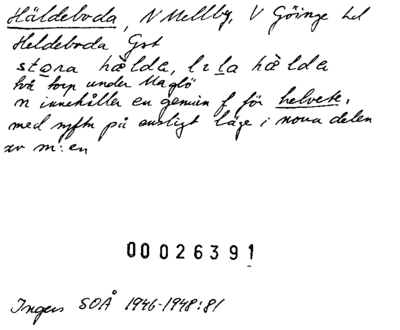 Häldeboda, N Mellby, V Göinge hd
Heldeboda Gst
stọra hælda, lɩla hælda
två torp under Maglö
n innehåller en genuin f för helvete,
med syftn på ensligt läge i norra delen
av m:en
00026391
Ingers SOÅ 1946-1948:81